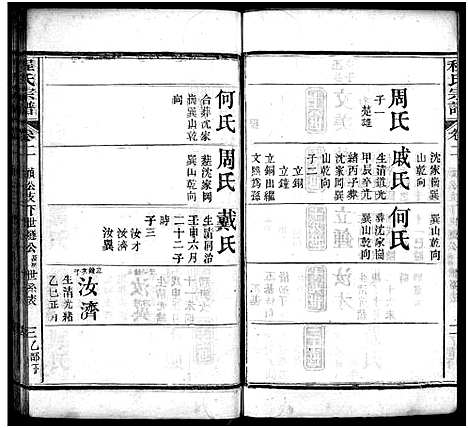 程氏宗譜
沈家崗巽
山乾向
周氏
子一
楚雄
戚氏
生清道光
甲辰卒光
緒丙子葬
沈家岡巽
山乾向
子二
立鐘
立銅
何氏
葬沈家岡
巽山乾向
何氏
合葬沈家
崗巽山乾
向
周氏
葬沈家岡
巽山乾向
戴氏
生清同治
壬申六月
二十二子
時
子三
汝才
汝濟
汝巽
汝濟
生清光緒
乙巳正月
程氏宗譜
卷二
三乙部下